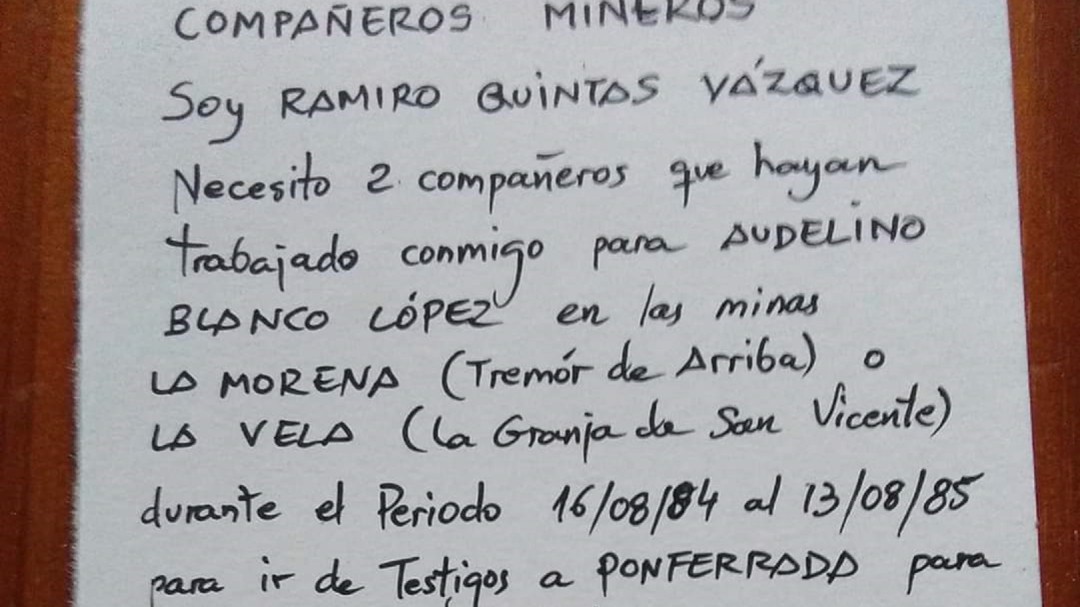 COMPAÑEROS MINEROS
Soy RAMIRO QUINTAS VÁZQUEZ
Necesito 2 compañeros que hayan
trabajado conmigo para AUDELINO
BLANCO LÓPEZ en las minas
LA MORENA (Tremór de Arriba) o
LA VELA (La Granja de San Vicente)
durante el Periodo 16/08/84 al 13/08/85
para ir de Testigos a PONFERRADA para